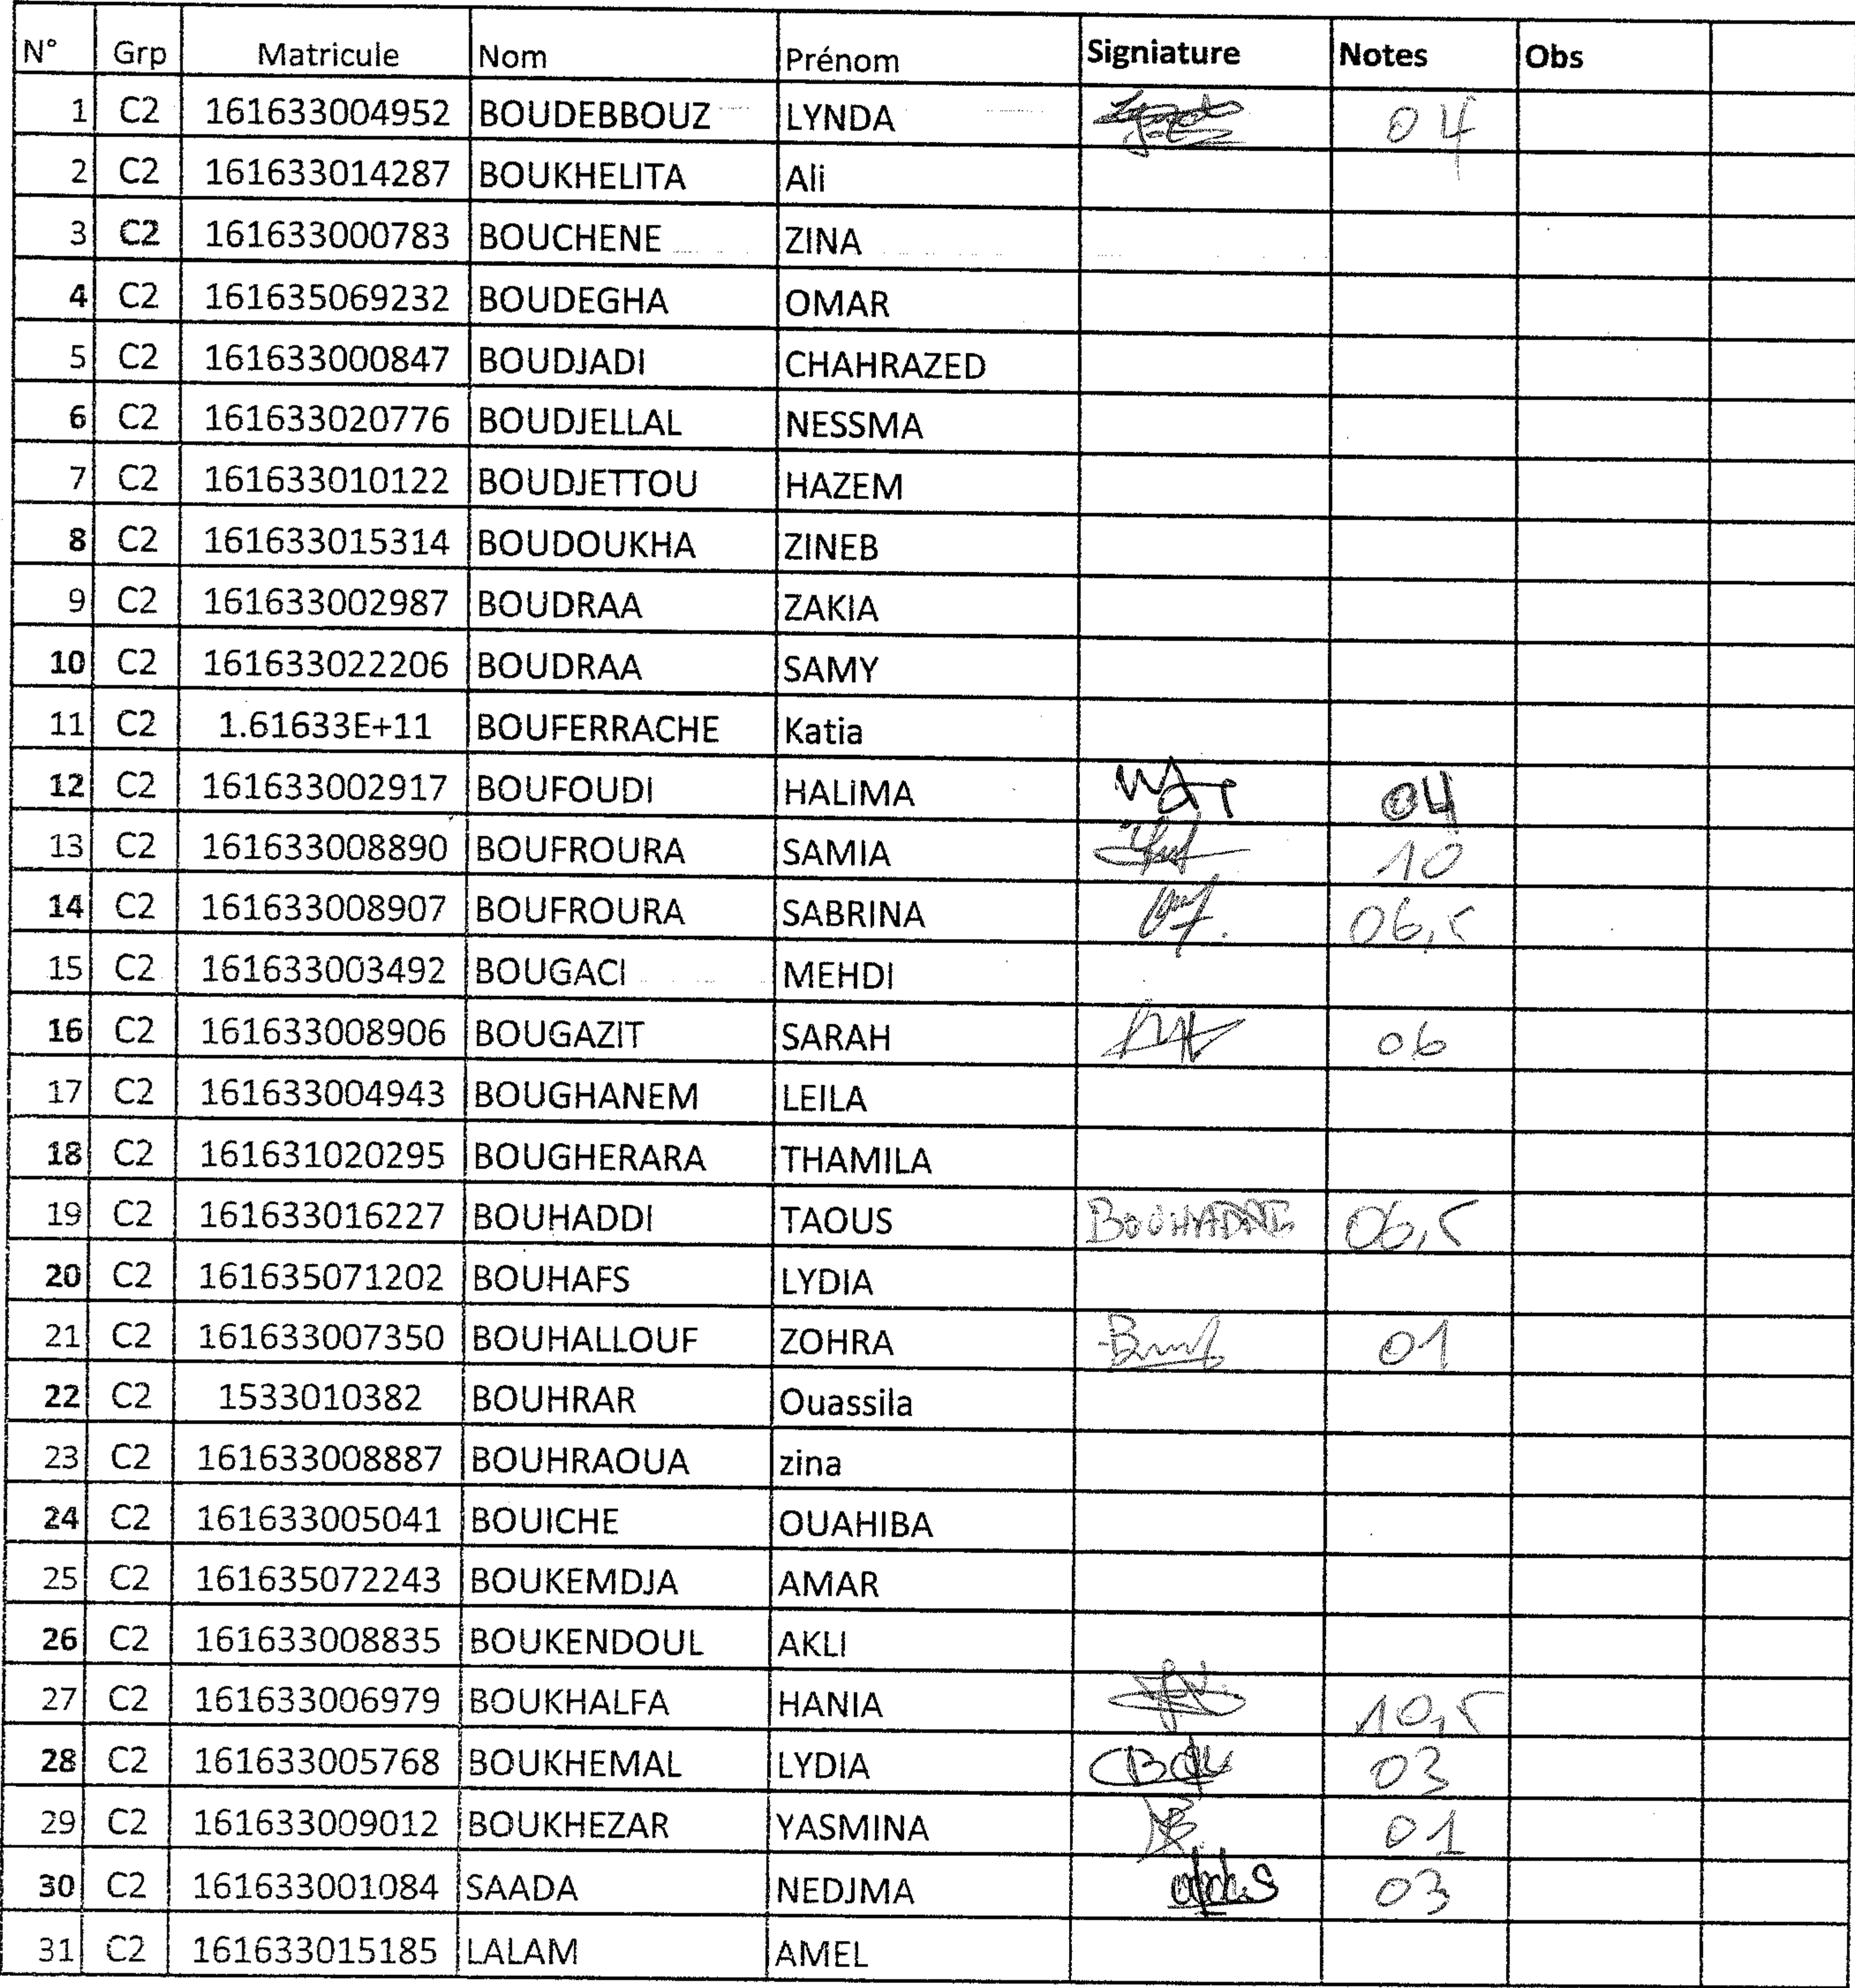 N° Grp Matricule Nom Prénom Signiature Notes Obs
1 C2 161633004952 BOUDEBBOUZ LYNDA 04
2 C2 161633014287 BOUKHELITA Ali
3 C2 161633000783 BOUCHENE ZINA
4 C2 161635069232 BOUDEGHA OMAR
5 C2 161633000847 BOUDJADI CHAHRAZED
6 C2 161633020776 BOUDJELLAL NESSMA
7 C2 161633010122 BOUDJETTOU HAZEM
8 C2 161633015314 BOUDOUKHA ZINEB
9 C2 161633002987 BOUDRAA ZAKIA
10 C2 161633022206 BOUDRAA SAMY
11 C2 1.61633E+11 BOUFERRACHE Katia
12 C2 161633002917 BOUFOUDI HALiMA 04
13 C2 161633008890 BOUFROURA SAMIA 10
14 C2 161633008907 BOUFROURA SABRINA 06,5
15 C2 161633003492 BOUGACI MEHDI
16 C2 161633008906 BOUGAZIT SARAH 06
17 C2 161633004943 BOUGHANEM LEILA
18 C2 161631020295 BOUGHERARA THAMILA
19 C2 161633016227 BOUHADDI TAOUS BOUHADDI 06,5
20 C2 161635071202 BOUHAFS LYDIA
21 C2 161633007350 BOUHALLOUF ZOHRA 01
22 C2 1533010382 BOUHRAR Ouassila
23 C2 161633008887 BOUHRAOUA zina
24 C2 161633005041 BOUICHE OUAHIBA
25 C2 161635072243 BOUKEMDJA AMAR
26 C2 161633008835 BOUKENDOUL AKLI
27 C2 161633006979 BOUKHALFA HANIA 10,5
28 C2 161633005768 BOUKHEMAL LYDIA 03
29 C2 161633009012 BOUKHEZAR YASMINA 01
30 C2 161633001084 SAADA NEDJMA 03
31 C2 161633015185 LALAM AMEL